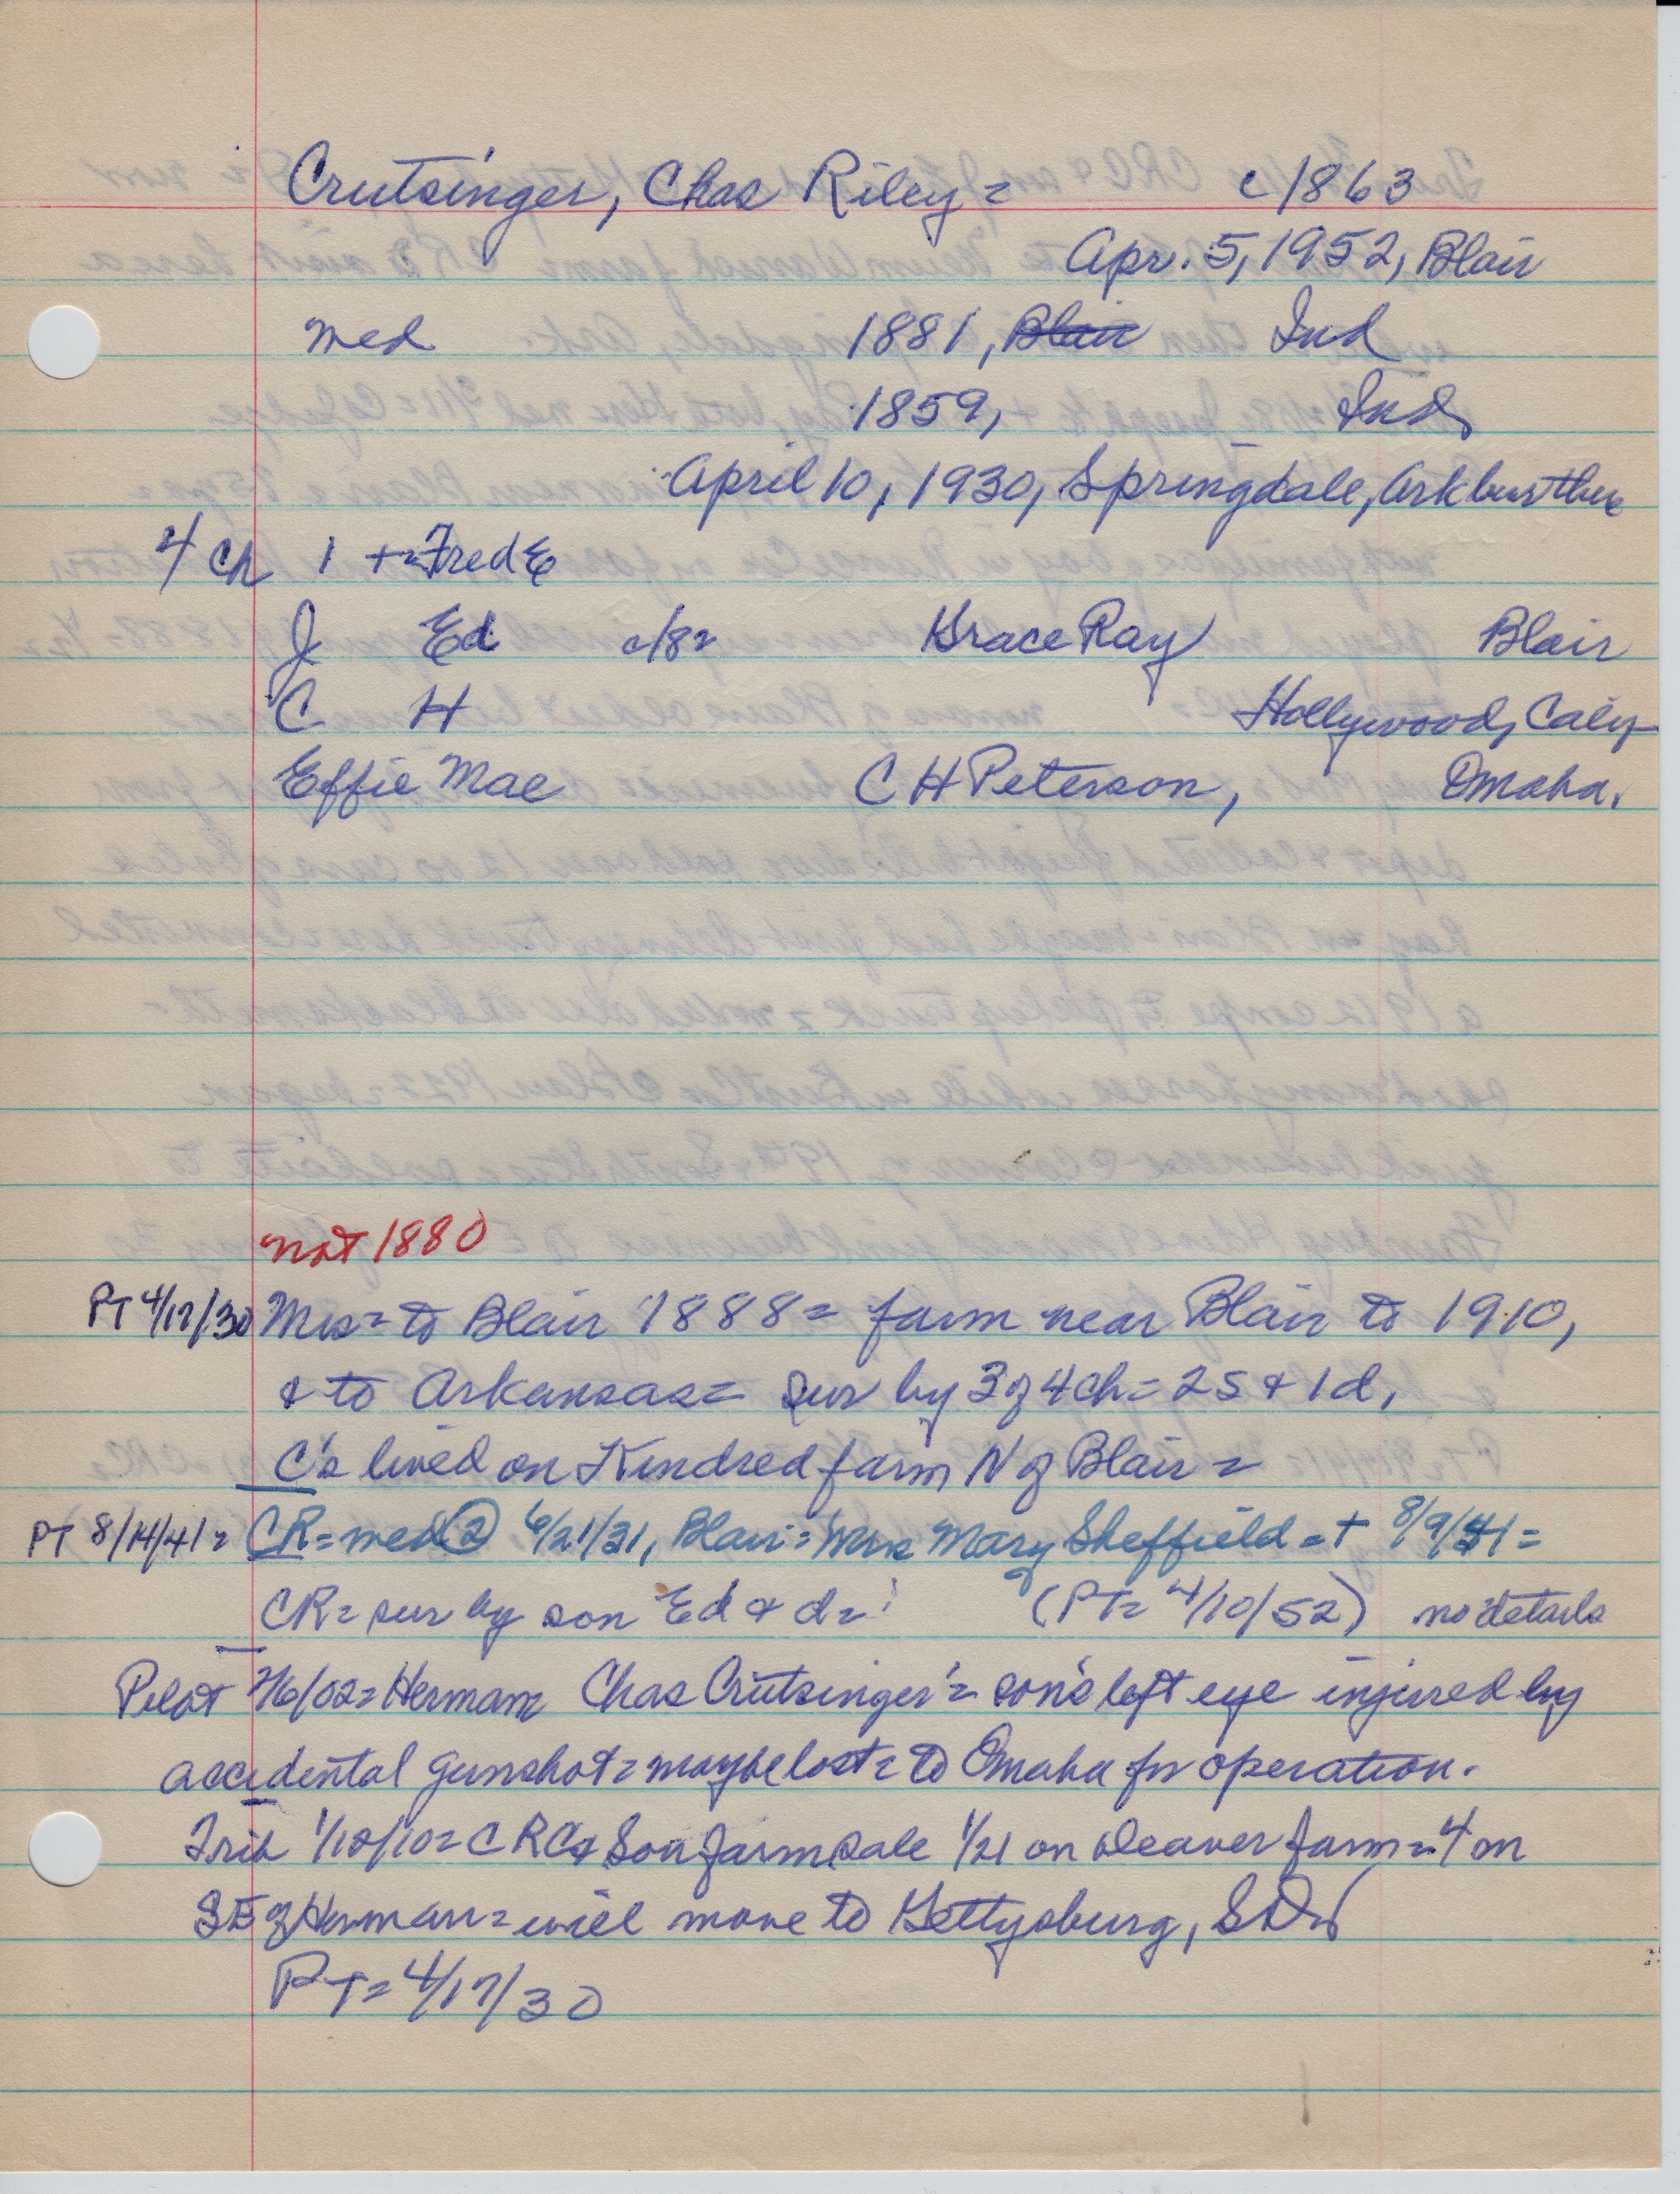 Crutsinger, Chas Riley = c1863
Apr. 5, 1952, Blair
med 1881, Blair Ind
1859, Ind
April 10, 1930, Springdale, Ark bur there
4 ch 1 += Fred E
J Ed c/82 Grace Ray Blair
C H Hollywood, Calif
Effie Mae C H Peterson, Omaha.
not 1880
PT 4/17/30 Mrs = to Blair 1888 = farm near Blair to 1910,
& to Arkansas = sur by 3 of 4 ch = 2S & 1d,
C's lived on Kindred farm N of Blair =
PT 8/14/41 = CR = med (2) 6/21/31, Blair = Mrs Mary Sheffield = + 8/9/41 =
CR = sur by son Ed & d = (PT = 4/10/52) no details
Pilot 2/6/02 = Herman Chas Crutsinger's = son's left eye injured by
accidental gunshot = maybe lost = to Omaha for operation.
Trib 1/12/10 = C R C & Son farm sale 1/21 on Weaver farm = 4 m
SE of Herman = will move to Gettysburg, S D
PT = 4/17/30